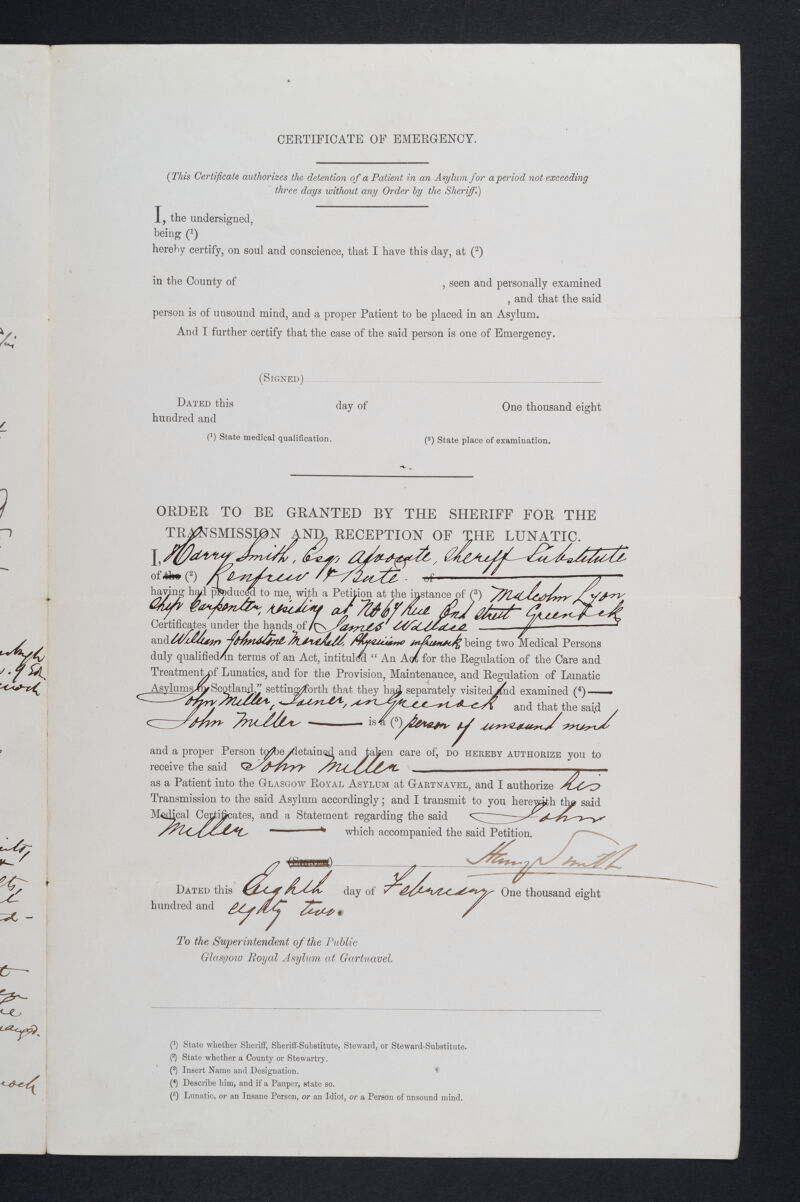 CERTIFICATE OF EMERGENCY.
(This Certificate authorizes the detention of a Patient in an Asylum for a period not exceeding
three days without any Order by the Sheriff.)
I, the undersigned,
being (1)
hereby certify, on soul and conscience, that I have this day, at (2)
in the County of , seen and personally examined
, and that the said
person is of unsound mind, and a proper Patient to be placed in an Asylum.
And I further certify that the case of the said person is one of Emergency.
(SIGNED)
DATED this day of One thousand eight
hundred and
(1) State medical qualification. (2) State place of examination.
ORDER TO BE GRANTED BY THE SHERIFF FOR THE
TRANSMISSION AND RECEPTION OF THE LUNATIC.
I, Harry Smith, Esq, advocate, Sheriff Substitute
of the (2) Renfrew & Bute. of
having had produced to me, with a Petition at the instance of (3) Malcolm Lyon
Ship Carpenter, residing at No 67 Rue End Street Greenock
Certificates under the hands of James Wallace
and William Johnstone Marshall, Physicians in Greenock, being two Medical Persons
duly qualified in terms of an Act, intituled "An Act for the Regulation of the Care and
Treatment of Lunatics, and for the Provision, Maintenance, and Regulation of Lunatic
Asylums in Scotland," setting forth that they had separately visited and examined (4)
John Miller, Joiner, in Greenock and that the said
John Miller is a (5) person of unsound mind
and a proper Person to be detained and taken care of, DO HEREBY AUTHORIZE you to
receive the said John Miller
as a Patient into the GLASGOW ROYAL ASYLUM at GARTNAVEL, and I authorize his
Transmission to the said Asylum accordingly; and I transmit to you herewith the said
Medical Certificates, and a Statement regarding the said John
Miller which accompanied the said Petition.
(SIGNED) Harry Smith
DATED this Eighth day of February One thousand eight
hundred and eighty two.
To the Superintendent of the Public
Glasgow Royal Asylum at Gartnavel.
(1) State whether Sheriff, Sheriff-Substitute, Steward, or Steward-Substitute.
(2) State whether a County or Stewartry.
(3) Insert Name and Designation.
(4) Describe him, and if a Pauper, state so.
(5) Lunatic, or an Insane Person, or an Idiot, or a Person of unsound mind.